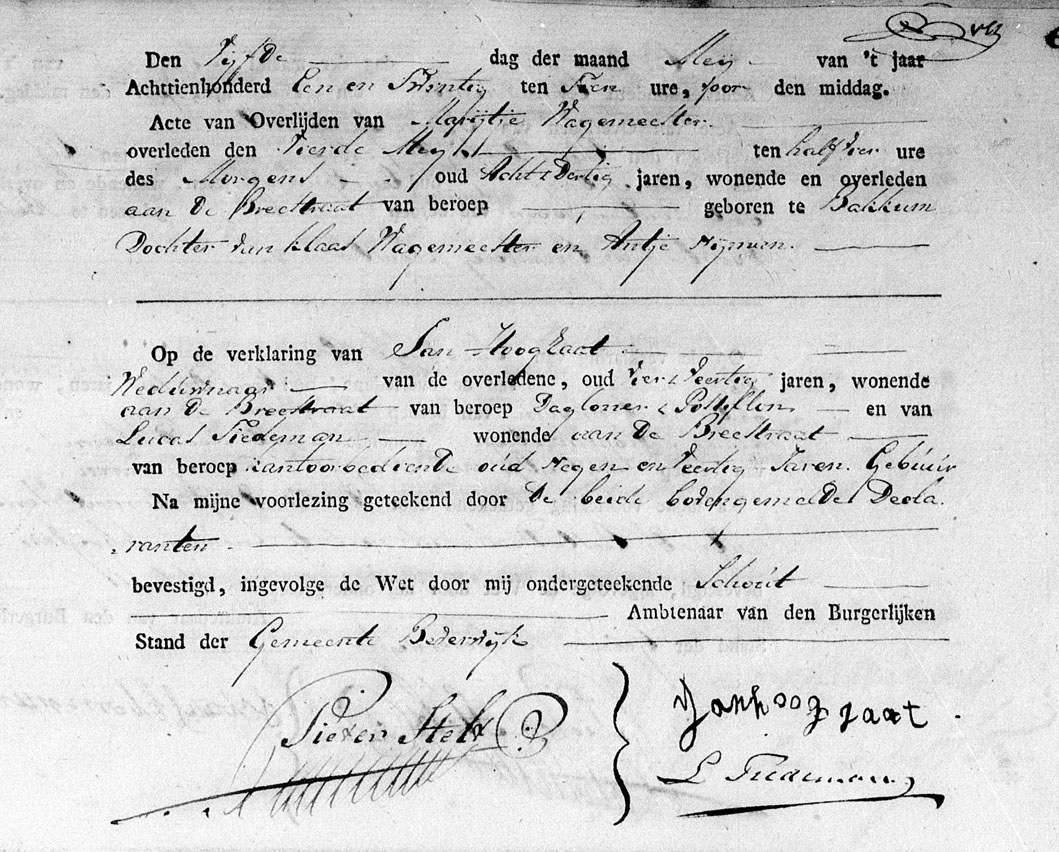 Den Vijfde dag der maand Mey van 't jaar
Achttienhonderd Een en Twintig ten Tien ure, voor den middag.
Acte van Overlijden van Marijtje Wagemeester
overleden den Vierde Mey ten half vier ure
des Morgens oud Acht & Dertig jaren, wonende en overleden
aan de Breestraat van beroep geboren te Bakkum
Dochter van Klaas Wagemeester en Antje Nijman.
Op de verklaring van Jan Hoogland
Weduwnaar van de overledene, oud Vier & Veertig jaren, wonende
aan de Breestraat van beroep Dagloner & en van
Lucas Tiedeman wonende aan de Breestraat
van beroep kantoorbediende oud Negen en Veertig Jaren. Gebuur
Na mijne voorlezing geteekend door de beide bovengemelde Decla
ranten
bevestigd, ingevolge de Wet door mij ondergeteekende Schout
Ambtenaar van den Burgerlijken
Stand der Gemeente Beverwijk
Pieter
L Tiedeman